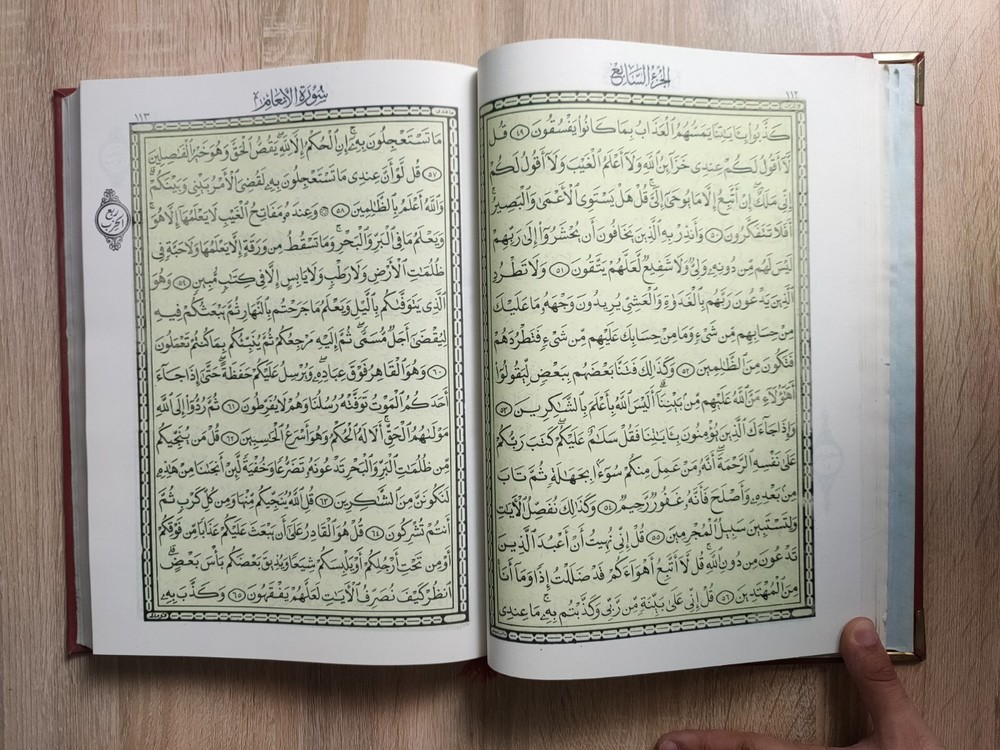 الجزء السابع
١١٢
كَذَّبُواْ بِـَٔايَٰتِنَا يَمَسُّهُمُ ٱلْعَذَابُ بِمَا كَانُواْ يَفْسُقُونَ ٤٩ قُل
لَّآ أَقُولُ لَكُمْ عِندِى خَزَآئِنُ ٱللَّهِ وَلَآ أَعْلَمُ ٱلْغَيْبَ وَلَآ أَقُولُ لَكُمْ
إِنِّى مَلَكٌ إِنْ أَتَّبِعُ إِلَّا مَا يُوحَىٰٓ إِلَىَّ قُلْ هَلْ يَسْتَوِى ٱلْأَعْمَىٰ وَٱلْبَصِيرُ
أَفَلَا تَتَفَكَّرُونَ ٥٠ وَأَنذِرْ بِهِ ٱلَّذِينَ يَخَافُونَ أَن يُحْشَرُوٓاْ إِلَىٰ رَبِّهِمْ
لَيْسَ لَهُم مِّن دُونِهِۦ وَلِىٌّ وَلَا شَفِيعٌ لَّعَلَّهُمْ يَتَّقُونَ ٥١ وَلَا تَطْرُدِ
ٱلَّذِينَ يَدْعُونَ رَبَّهُم بِٱلْغَدَوٰةِ وَٱلْعَشِىِّ يُرِيدُونَ وَجْهَهُۥ مَا عَلَيْكَ
مِنْ حِسَابِهِم مِّن شَىْءٍ وَمَا مِنْ حِسَابِكَ عَلَيْهِم مِّن شَىْءٍ فَتَطْرُدَهُمْ
فَتَكُونَ مِنَ ٱلظَّٰلِمِينَ ٥٢ وَكَذَٰلِكَ فَتَنَّا بَعْضَهُم بِبَعْضٍ لِّيَقُولُوٓاْ
أَهَٰٓؤُلَآءِ مَنَّ ٱللَّهُ عَلَيْهِم مِّنۢ بَيْنِنَآ أَلَيْسَ ٱللَّهُ بِأَعْلَمَ بِٱلشَّٰكِرِينَ ٥٣
وَإِذَا جَآءَكَ ٱلَّذِينَ يُؤْمِنُونَ بِـَٔايَٰتِنَا فَقُلْ سَلَٰمٌ عَلَيْكُمْ كَتَبَ رَبُّكُمْ
عَلَىٰ نَفْسِهِ ٱلرَّحْمَةَ أَنَّهُۥ مَنْ عَمِلَ مِنكُمْ سُوٓءًۢا بِجَهَٰلَةٍ ثُمَّ تَابَ
مِنۢ بَعْدِهِۦ وَأَصْلَحَ فَأَنَّهُۥ غَفُورٌ رَّحِيمٌ ٥٤ وَكَذَٰلِكَ نُفَصِّلُ ٱلْـَٔايَٰتِ
وَلِتَسْتَبِينَ سَبِيلُ ٱلْمُجْرِمِينَ ٥٥ قُلْ إِنِّى نُهِيتُ أَنْ أَعْبُدَ ٱلَّذِينَ
تَدْعُونَ مِن دُونِ ٱللَّهِ قُل لَّآ أَتَّبِعُ أَهْوَآءَكُمْ قَدْ ضَلَلْتُ إِذًا وَمَآ أَنَا۠
مِنَ ٱلْمُهْتَدِينَ ٥٦ قُلْ إِنِّى عَلَىٰ بَيِّنَةٍ مِّن رَّبِّى وَكَذَّبْتُم بِهِۦ مَا عِندِى
سورة الأنعام
١١٣
مَا تَسْتَعْجِلُونَ بِهِۦٓ إِنِ ٱلْحُكْمُ إِلَّا لِلَّهِ يَقُصُّ ٱلْحَقَّ وَهُوَ خَيْرُ ٱلْفَٰصِلِينَ
٥٧ قُل لَّوْ أَنَّ عِندِى مَا تَسْتَعْجِلُونَ بِهِۦ لَقُضِىَ ٱلْأَمْرُ بَيْنِى وَبَيْنَكُمْ
وَٱللَّهُ أَعْلَمُ بِٱلظَّٰلِمِينَ ٥٨ وَعِندَهُۥ مَفَاتِحُ ٱلْغَيْبِ لَا يَعْلَمُهَآ إِلَّا هُوَ
ربع الحزب
وَيَعْلَمُ مَا فِى ٱلْبَرِّ وَٱلْبَحْرِ وَمَا تَسْقُطُ مِن وَرَقَةٍ إِلَّا يَعْلَمُهَا وَلَا حَبَّةٍ فِى
ظُلُمَٰتِ ٱلْأَرْضِ وَلَا رَطْبٍ وَلَا يَابِسٍ إِلَّا فِى كِتَٰبٍ مُّبِينٍ ٥٩ وَهُوَ
ٱلَّذِى يَتَوَفَّىٰكُم بِٱلَّيْلِ وَيَعْلَمُ مَا جَرَحْتُم بِٱلنَّهَارِ ثُمَّ يَبْعَثُكُمْ فِيهِ
لِيُقْضَىٰٓ أَجَلٌ مُّسَمًّى ثُمَّ إِلَيْهِ مَرْجِعُكُمْ ثُمَّ يُنَبِّئُكُم بِمَا كُنتُمْ تَعْمَلُونَ
٦٠ وَهُوَ ٱلْقَاهِرُ فَوْقَ عِبَادِهِۦ وَيُرْسِلُ عَلَيْكُمْ حَفَظَةً حَتَّىٰٓ إِذَا جَآءَ
أَحَدَكُمُ ٱلْمَوْتُ تَوَفَّتْهُ رُسُلُنَا وَهُمْ لَا يُفَرِّطُونَ ٦١ ثُمَّ رُدُّوٓاْ إِلَى ٱللَّهِ
مَوْلَىٰهُمُ ٱلْحَقِّ أَلَا لَهُ ٱلْحُكْمُ وَهُوَ أَسْرَعُ ٱلْحَٰسِبِينَ ٦٢ قُلْ مَن يُنَجِّيكُم
مِّن ظُلُمَٰتِ ٱلْبَرِّ وَٱلْبَحْرِ تَدْعُونَهُۥ تَضَرُّعًا وَخُفْيَةً لَّئِنْ أَنجَىٰنَا مِنْ هَٰذِهِۦ
لَنَكُونَنَّ مِنَ ٱلشَّٰكِرِينَ ٦٣ قُلِ ٱللَّهُ يُنَجِّيكُم مِّنْهَا وَمِن كُلِّ كَرْبٍ ثُمَّ
أَنتُمْ تُشْرِكُونَ ٦٤ قُلْ هُوَ ٱلْقَادِرُ عَلَىٰٓ أَن يَبْعَثَ عَلَيْكُمْ عَذَابًا مِّن فَوْقِكُمْ
أَوْ مِن تَحْتِ أَرْجُلِكُمْ أَوْ يَلْبِسَكُمْ شِيَعًا وَيُذِيقَ بَعْضَكُم بَأْسَ بَعْضٍ
ٱنظُرْ كَيْفَ نُصَرِّفُ ٱلْـَٔايَٰتِ لَعَلَّهُمْ يَفْقَهُونَ ٦٥ وَكَذَّبَ بِهِۦ